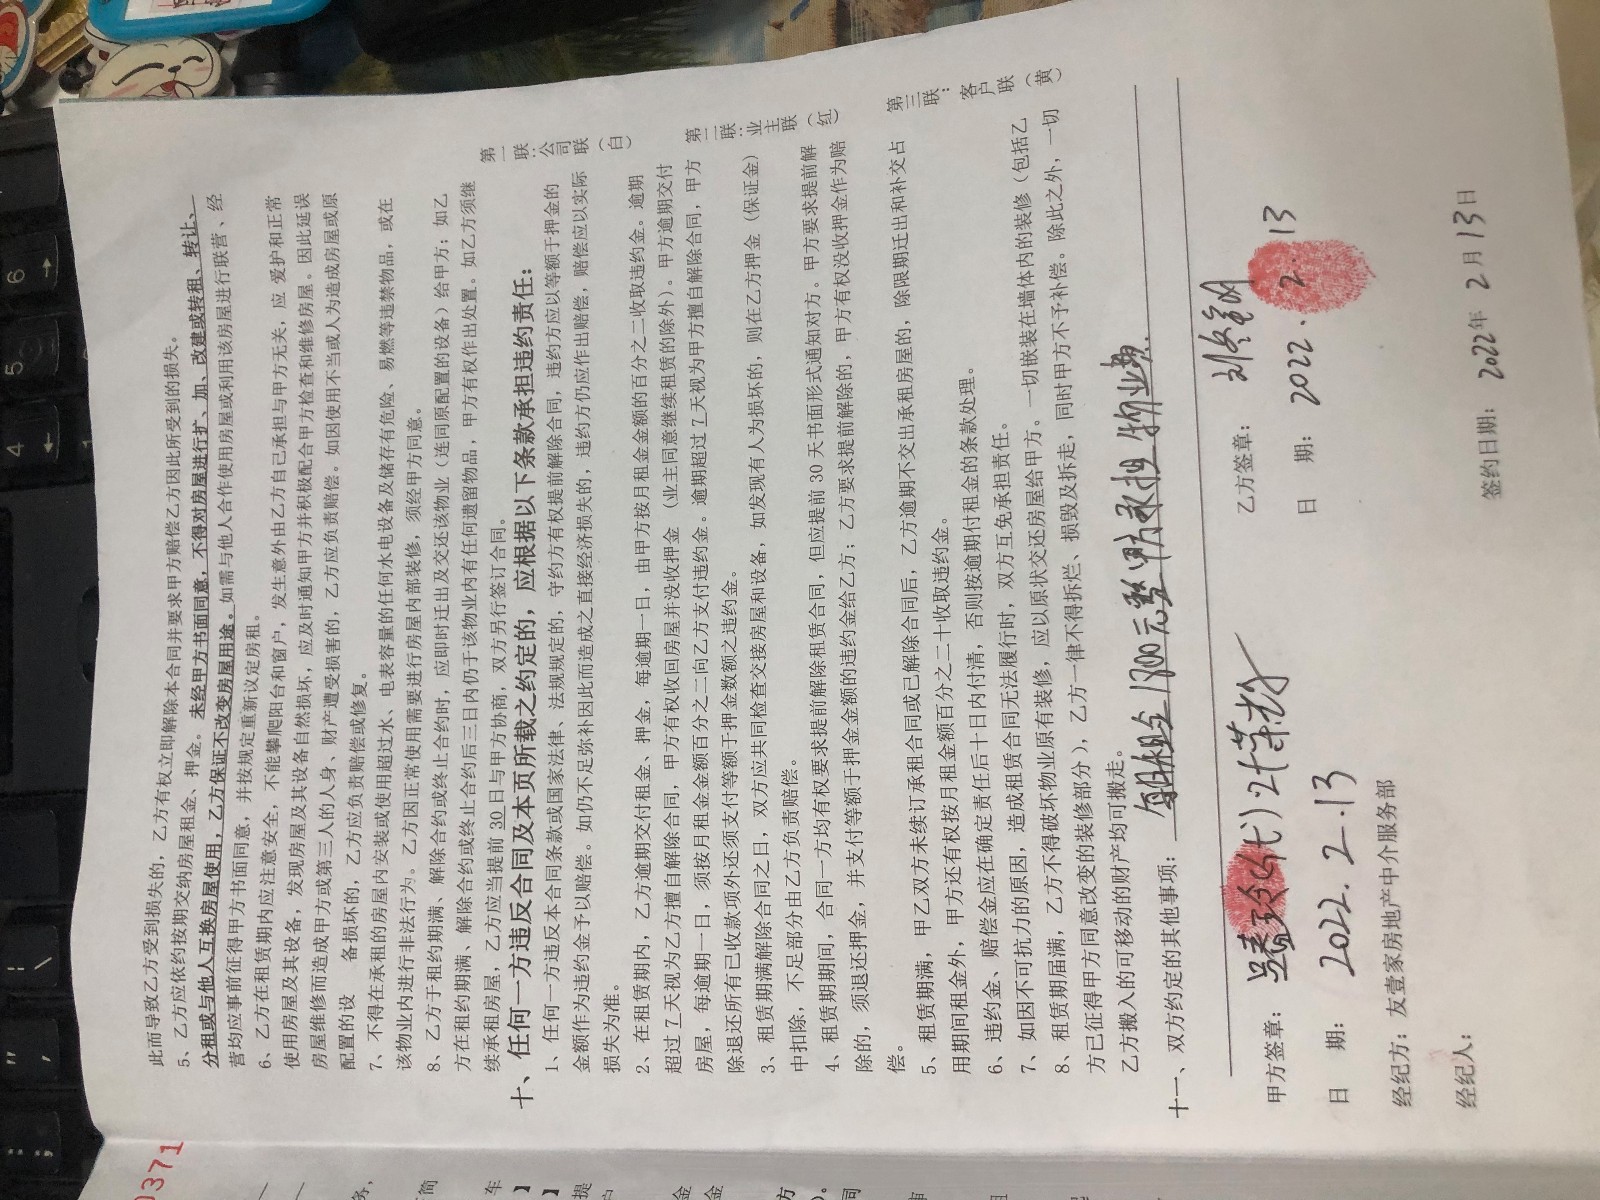 此而导致乙方受到损失的，乙方有权立即解除本合同并要求甲方赔偿乙方因此所受到的损失。
5、乙方应依约按期交纳房屋租金、押金。未经甲方书面同意，不得对房屋进行扩、加、改建或转租、转让、
分租或与他人互换房屋使用，乙方保证不改变房屋用途。如需与他人合作使用房屋或利用该房屋进行联营、经
营均应事前征得甲方书面同意，并按规定重新议定房租。
6、乙方在租赁期内应注意安全，不能攀爬阳台和窗户，发生意外由乙方自己承担与甲方无关，应 爱护和正常
使用房屋及其设备，发现房屋及其设备自然损坏，应及时通知甲方并积极配合甲方检查和维修房屋。因此延误
房屋维修而造成甲方或第三人的人身、财产遭受损害的，乙方应负责赔偿。如因使用不当或人为造成房屋或原
配置的设 备损坏的，乙方应负责赔偿或修复。
7、不得在承租的房屋内安装或使用超过水、电表容量的任何水电设备及储存有危险、易燃等违禁物品，或在
该物业内进行非法行为。乙方因正常使用需要进行房屋内部装修，须经甲方同意。
8、乙方于租约期满、解除合约或终止合约时，应即时迁出及交还该物业（连同原配置的设备）给甲方；如乙
方在租约期满、解除合约或终止合约后三日内仍于该物业内有任何遗留物品，甲方有权作出处置。如乙方须继
续承租房屋，乙方应当提前 30 日与甲方协商，双方另行签订合同。
十、任何一方违反合同及本页所载之约定的，应根据以下条款承担违约责任：
1、任何一方违反本合同条款或国家法律、法规规定的，守约方有权提前解除合同，违约方应以等额于押金的
金额作为违约金予以赔偿。如仍不足弥补因此而造成之直接经济损失的，违约方仍应作出赔偿，赔偿应以实际
损失为准。
2、在租赁期内，乙方逾期交付租金、押金，每逾期一日，由甲方按月租金金额的百分之二收取违约金。逾期
超过 7 天视为乙方擅自解除合同，甲方有权收回房屋并没收押金 （业主同意继续租赁的除外）。甲方逾期交付
房屋，每逾期一日，须按月租金金额百分之二向乙方支付违约金。逾期超过 7 天视为甲方擅自解除合同，甲方
除退还所有已收款项外还须支付等额于押金数额之违约金。
3、租赁期满解除合同之日，双方应共同检查交接房屋和设备，如发现有人为损坏的，则在乙方押金（保证金）
中扣除，不足部分由乙方负责赔偿。
4、租赁期期间，合同一方均有权要求提前解除租赁合同，但应提前 30 天书面形式通知对方。甲方要求提前解
除的，须退还押金，并支付等额于押金金额的违约金给乙方；乙方要求提前解除的，甲方有权没收押金作为赔
偿。
5、租赁期满，甲乙双方未续订承租合同或已解除合同后，乙方逾期不交出承租房屋的，除限期迁出和补交占
用期间租金外，甲方还有权按月租金额百分之二十收取违约金。
6、违约金、赔偿金应在确定责任后十日内付清，否则按逾期付租金的条款处理。
7、如因不可抗力的原因，造成租赁合同无法履行时，双方互免承担责任。
8、租赁期届满，乙方不得破坏物业原有装修，应以原状交还房屋给甲方。一切嵌装在墙体内的装修（包括乙
方已征得甲方同意改变的装修部分），乙方一律不得拆烂、损毁及拆走，同时甲方不予补偿。除此之外，一切
乙方搬入的可移动的财产均可搬走。
十一、双方约定的其他事项：每月租金1300元整甲方承担物业费
甲方签章： (代)
乙方签章：
日 期： 2022.2.13
日 期： 2022.2.13
经纪方：友壹家房地产中介服务部
经纪人：
签约日期： 2022年 2月13日
第一联：公司联（白）
第二联：业主联（红）
第三联：客户联（黄）
0371